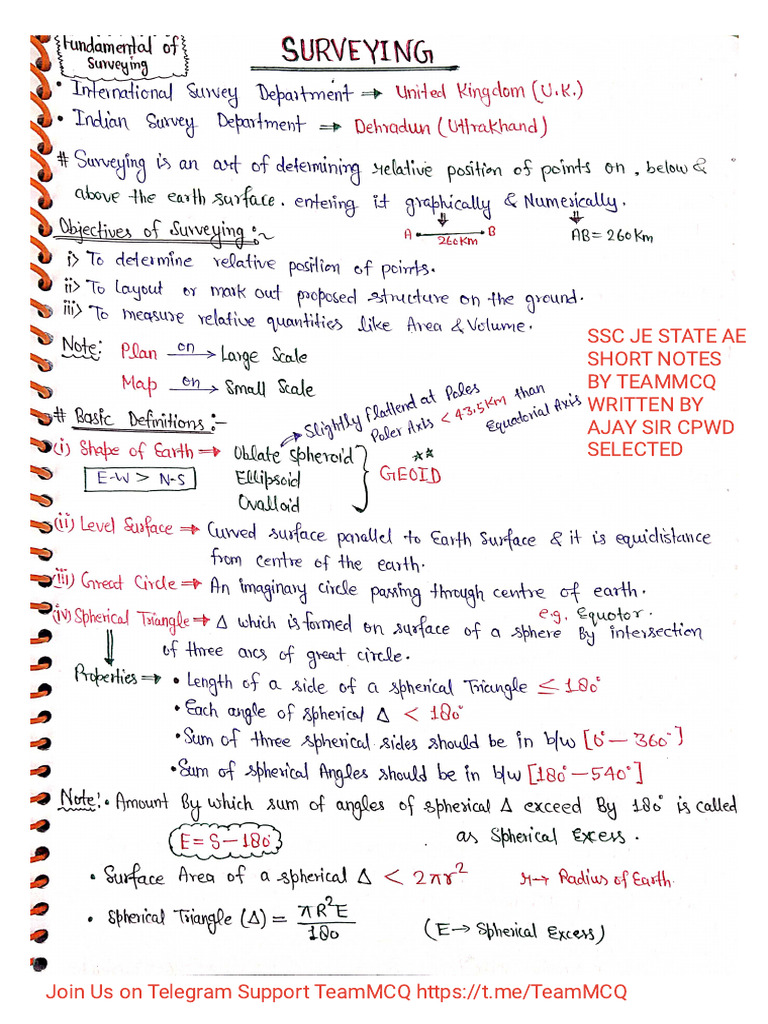 Fundamental of
Surveying
SURVEYING
• International Survey Department → United Kingdom (U.K.)
• Indian Survey Department → Dehradun (Uttrakhand)
# Surveying is an art of determining relative position of points on, below &
above the earth surface. entering it graphically & Numerically.
A 260Km B
AB = 260Km
Objectives of Surveying :~
i> To determine relative position of points.
ii> To Layout or mark out proposed structure on the ground.
iii> To measure relative quantities like Area & Volume.
Note: Plan on → Large Scale
Map on → Small Scale
SSC JE STATE AE
SHORT NOTES
BY TEAMMCQ
WRITTEN BY
AJAY SIR CPWD
SELECTED
# Basic Definitions :-
Slightly flattend at Poles
Poler Axis < 43.5Km than
Equatorial Axis
(i) Shape of Earth → Oblate Spheroid
E-W > N-S
Ellipsoid
Ovalloid
** GEOID
(ii) Level Surface → Curved surface parallel to Earth Surface & it is equidistance
from centre of the earth.
(iii) Great Circle → An imaginary circle passing through centre of earth.
e.g. Equotor.
(iv) Spherical Triangle → Δ which is formed on surface of a sphere By intersection
of three arcs of great circle.
Properties → • Length of a side of a spherical Triangle ≤ 180°
• Each angle of spherical Δ < 180°
• Sum of three spherical sides should be in b/w [0° — 360°]
• Sum of spherical Angles should be in b/w [180° — 540°]
Note: • Amount By which sum of angles of spherical Δ exceed By 180° is called
as Spherical Excess.
E = S — 180°
• Surface Area of a spherical Δ < 2πr² r → Radius of Earth.
• Spherical Triangle (Δ) = πR²E / 180 (E → Spherical Excess)
Join Us on Telegram Support TeamMCQ https://t.me/TeamMCQ